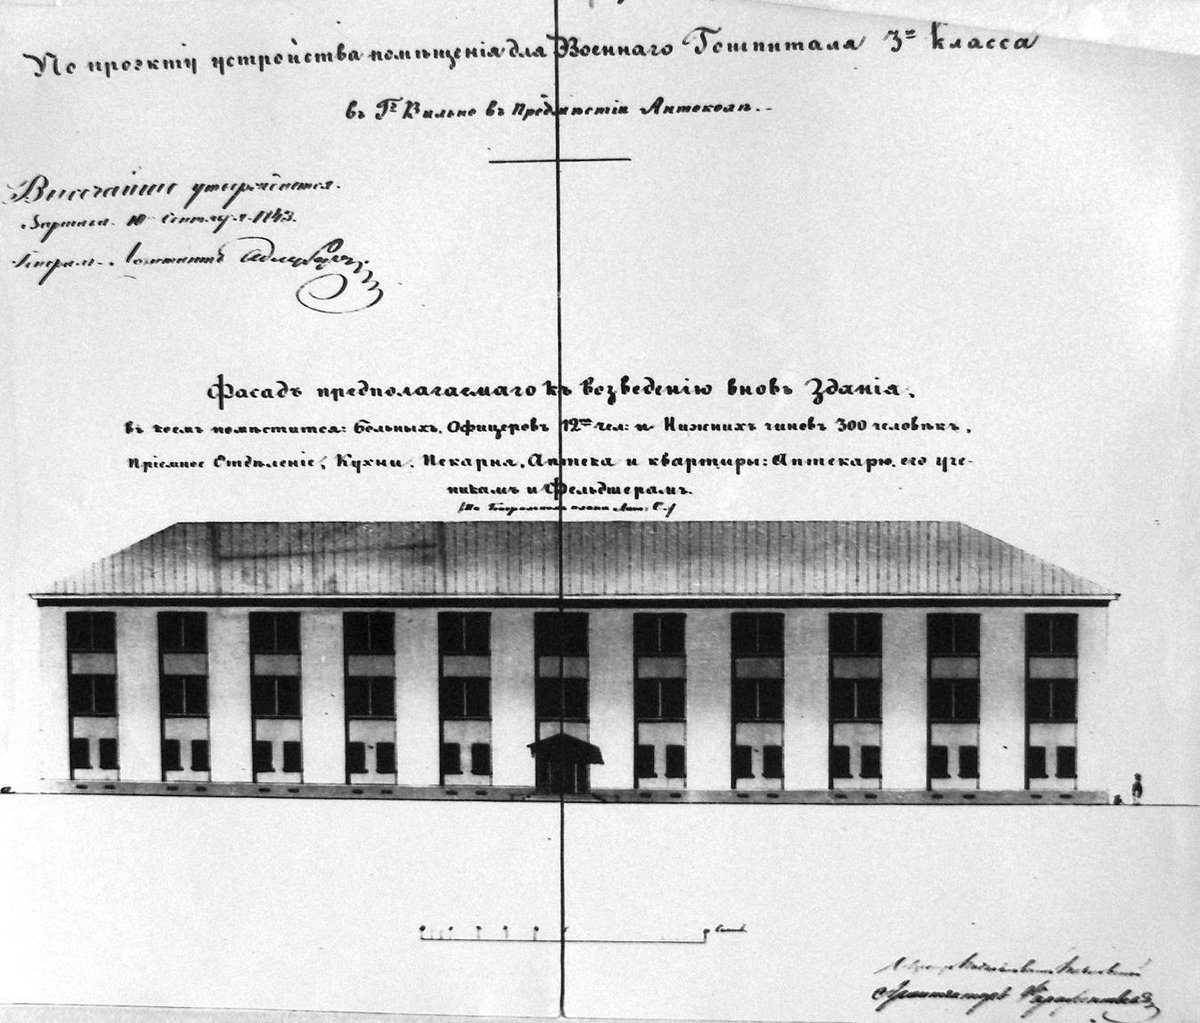 По проэкту устройства помѣщенія для Военнаго Гошпиталя 3го класса
въ Гѣ Вильно въ Предмѣстіи Антоколѣ.
Высочайше утверждается.
Варшава. 10 Сентября 1843.
Генералъ-
Фасадъ предполагаемаго къ возведенію вновь Зданія,
въ коемъ помѣстится: больныхъ, Офицеровъ 12ть чел: и Нижнихъ чиновъ 300 человѣкъ,
Пріемное Отдѣленіе, Кухни, Пекарня, Аптека и квартиры: Аптекарю, его уче-
никамъ и Фельдшерамъ.
(На Генеральномъ планѣ Лит: С.)
Сажень
Архитекторъ